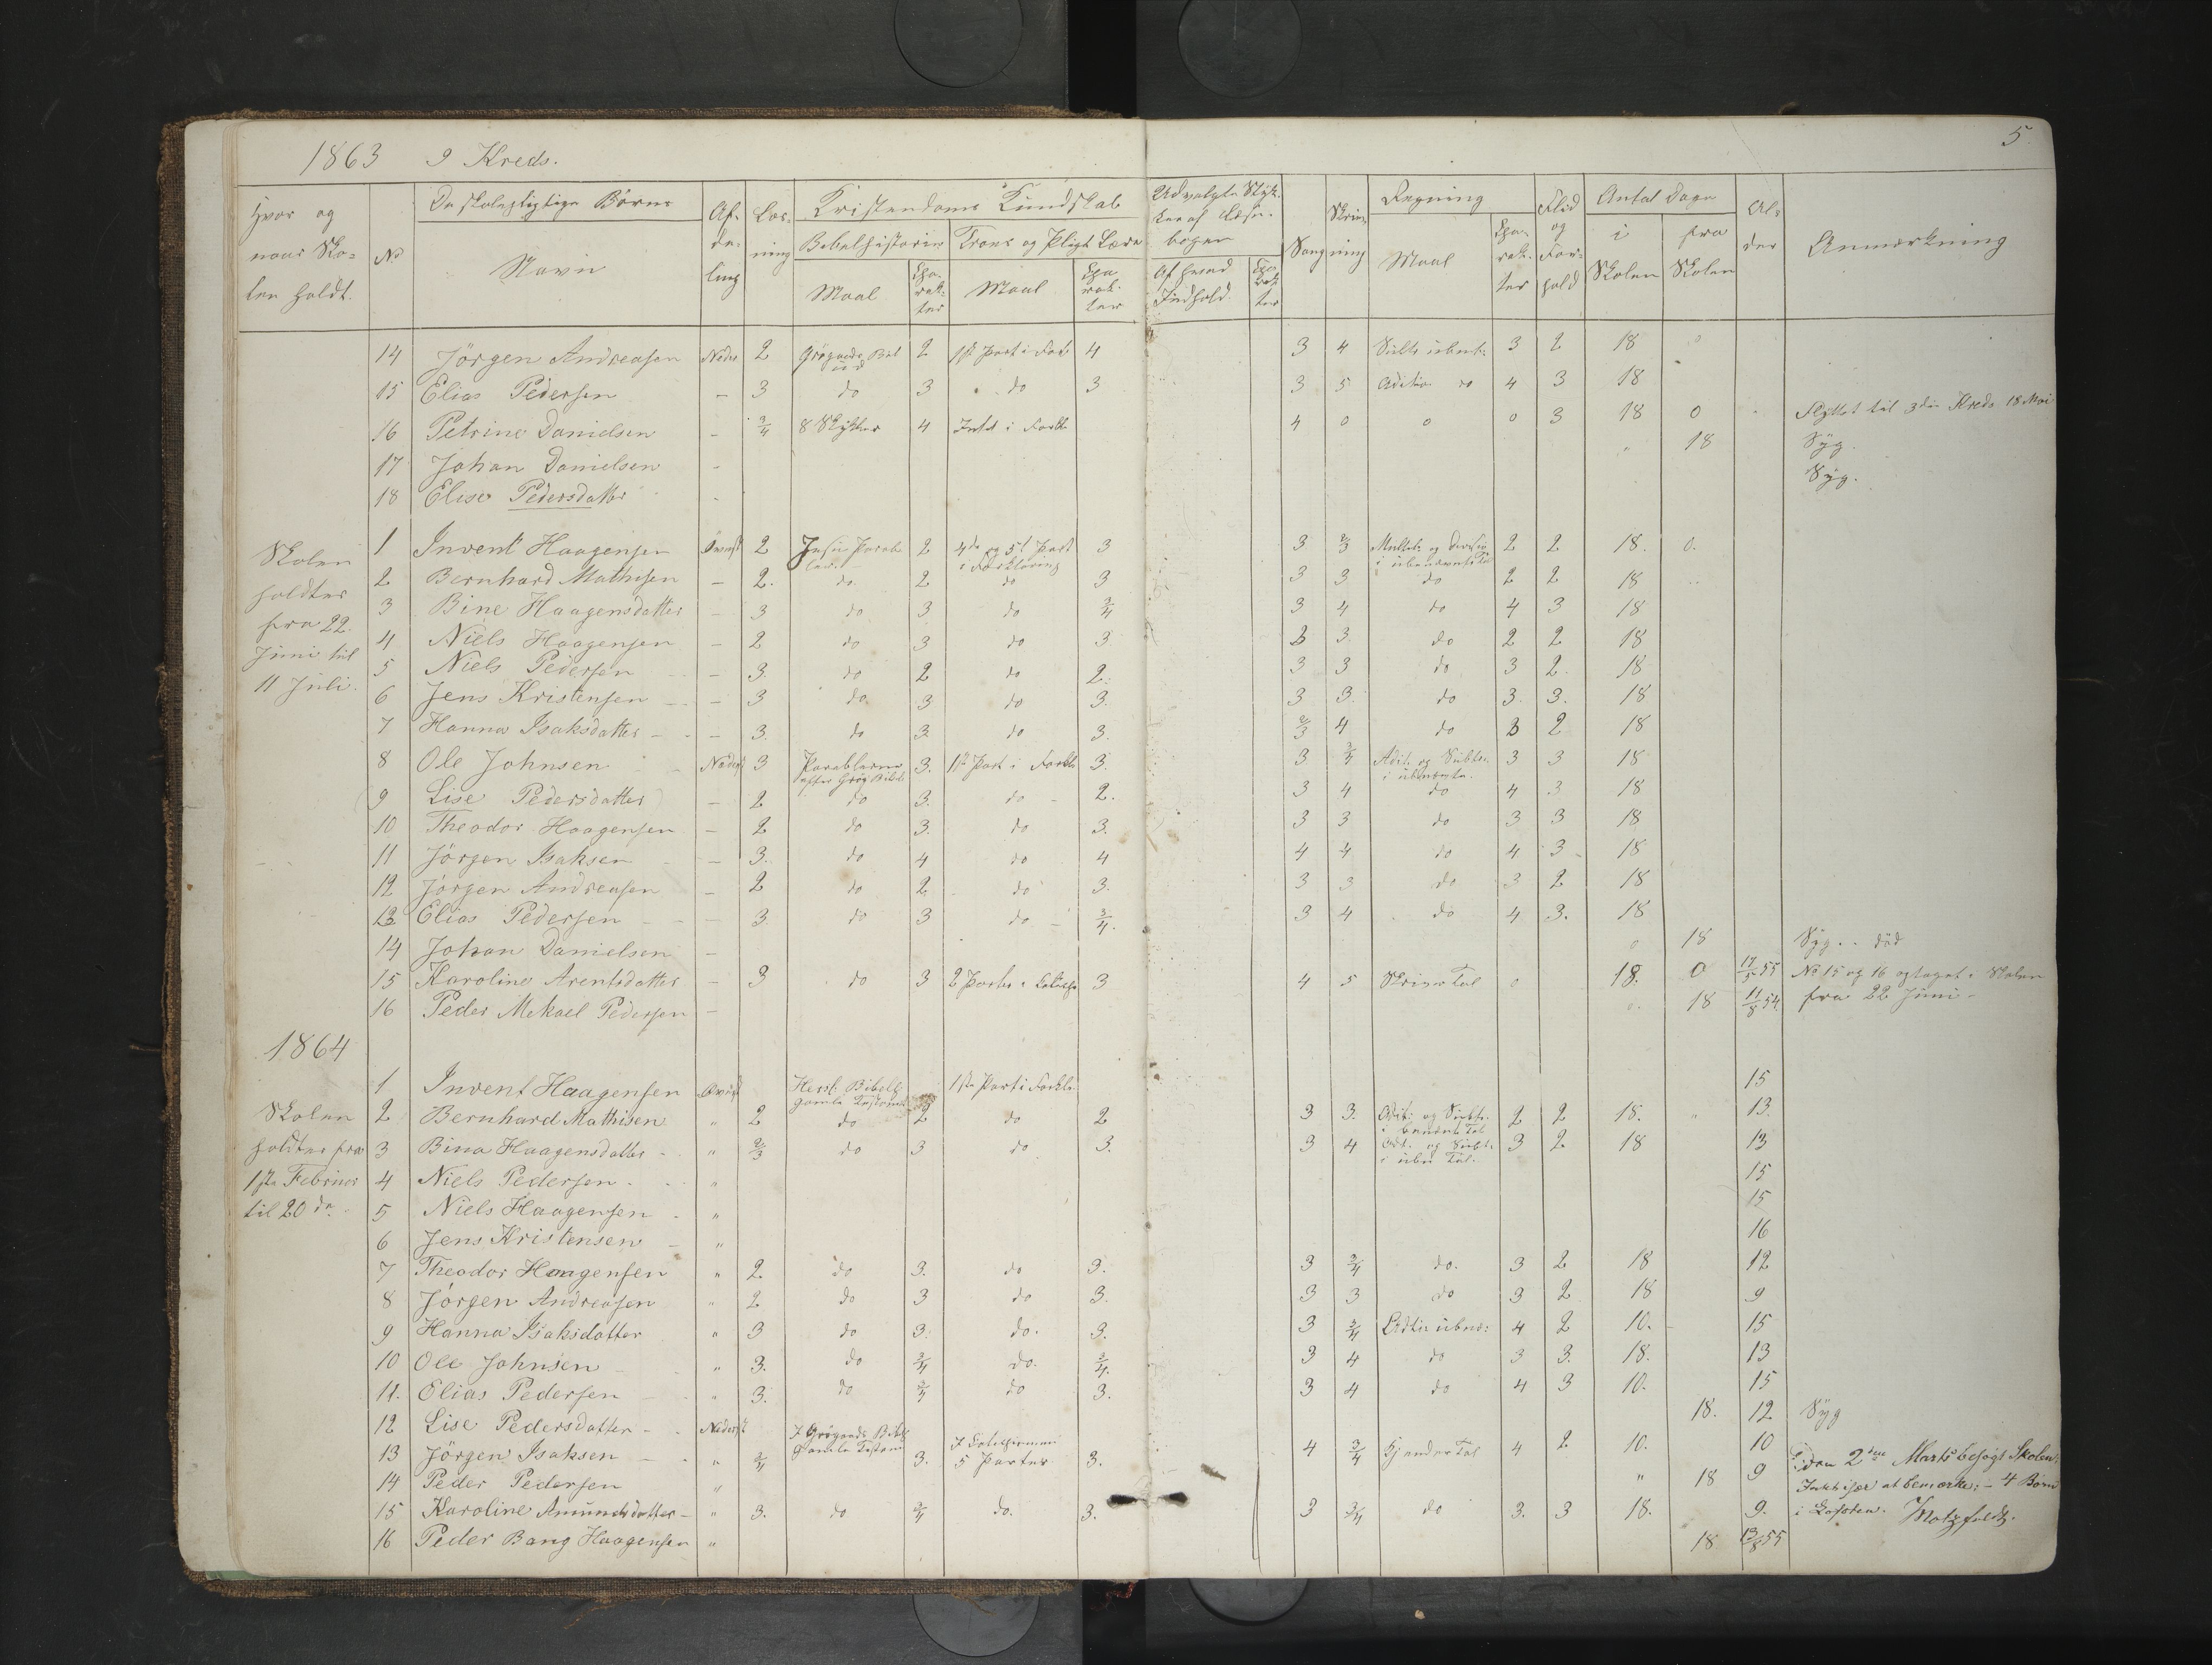 1863 9 Kreds. 5
Hvor og naar Skolen holdt. No De skolepligtige Børns Navn Afdeling Læsning Kristendoms Kundskab Bibelhistorie Maal Charakter Troes og Pligt Lære Maal Charakter Udvalgte Stykker af Læsebogen Af hvad Indhold Charakter Sang Skrivning Regning Maal Charakter Flid og Forhold Antal Dage i Skolen fra Skolen Alder Anmærkning
14 Jörgen Andreasen Neders 2 2 1ste Part i Fork 4 3 4 3 2 18 0
15 Elias Pedersen – 3 do 3 do 3 3 5 Adition do 4 3 18
16 Petrine Danielsen – 3/4 8 Stykker 4 Intet i Fork 4 0 0 0 3 18 0 Flyttet til 3die Kreds 18 Mai
17 Johan Danielsen – " 18 Syg.
18 Elise Pedersdatter - Syg.
Skolen holdtes fra 22 Juni til 11 Juli.
1 Invent Haagensen Överst 2 Jesu Parabler 2 4de og 5t Part i Forklaring 3 3 2/3 Multipl: og Divisjon i ubenævnte Tal 2 2 18. 0.
2 Bernhard Mathisen – 2. do. 2 do 3 3 3 do 2 2 18
3 Bine Haagensdatter – 3 do 3 do 3/4 3 4 do 4 3 18
4 Niels Haagensen – 2 do 3 do 3 3 3 do 2 2 18
5 Niels Pedersen – 3. do 2 do 2. 3 3 do 3 2. 18
6 Jens Kristensen – 3 do 3 do 3. 3 3. do 3. 3. 18
7 Hanna Isaksdatter – 3. do 3 do 3. 2/3 4 do 3 2 18
8 Ole Johnsen Nederst 3 Parablerne efter Grøg Bibl: 3. 1ste Part i Forkl 3. 3 3/4 Adit: og Subtr: i ubenævnte. 3 3 18
9 Lise Pedersdatter – 2 do 3. do 2. 3 4 do 4 3 18
10 Theodor Haagensen – 2 do 3. do 3. 3 3 do 3 3 18
11 Jörgen Isaksen – 3. do 4 do 4 4 4 do 4 3 18
12 Jörgen Andreasen – 2 do 2 do 3. 3 3 do 3 2 18
13 Elias Pedersen – 3. do 3 do 3/4. 3 4 do 4 3. 18
14 Johan Danielsen – 0 18 Syg. . död
15 Karoline Arentsdatter – 3 do 3 2 Parter i 3 4 5 Skriver Tal 0 18. 0 17/5 55 No 15 og 16 optaget i Skolen
16 Peder Mekael Pedersen – 0. 18 11/8 54. fra 22 Juni –
1864
Skolen holdtes fra 1ste Februar til 20de.
1 Invent Haagensen Överst Hersl: Bibelh: gamle Testam: 1ste Part i Forkl: 15
2 Bernhard Mathisen " 2 do 2 do 2 3 3. Adit: og Subtr: i benævnte Tal 2 2 18. " 13.
3 Bina Haagensdatter " 2/3 do 3 do 3. 3 4 Adt: og Subt: i uben Tal. 3 2 18 13
4 Niels Pedersen " 15
5 Niels Haagensen " 15
6 Jens Kristensen " 16
7 Theodor Haagensen " 2. do 3. do 3. 3 3/4 do. 3 2 18 12
8 Jörgen Andreasen " 2 do 3 do 3. 3 3 do 3 2 18 9
9 Hanna Isaksdatter " 3 do 3. do. 3. 3 3/4 4 2 10. 15
10 Ole Johnsen " 3. do 3/4 do. 3/4. 3 4 do 3 3. 18. 13
11. Elias Pedersen " 3. do 3/4 do 3. 3 4 do 4 3 10. 15
12 Lise Pedersdatter Nederst 18. 12 Syg
13 Jörgen Isaksen " 3/4 I Grøgaards Bibelh gamle Testam 3. 5 Parter 3. 4 3/4 Kjender Tal 4 2 10. 10
14 Peder Pedersen " " 18 9
15 Karoline Amundsdatter – " 3. do 3/4 do. 3. 3 3/4 do 3. 3 18. 9.
16 Peder Bang Haagensen " 18 13/8 55
2den Marts besøgt Skolen.
at bemærke: – 4 Börn
i Lofoten. Motzfeldt.